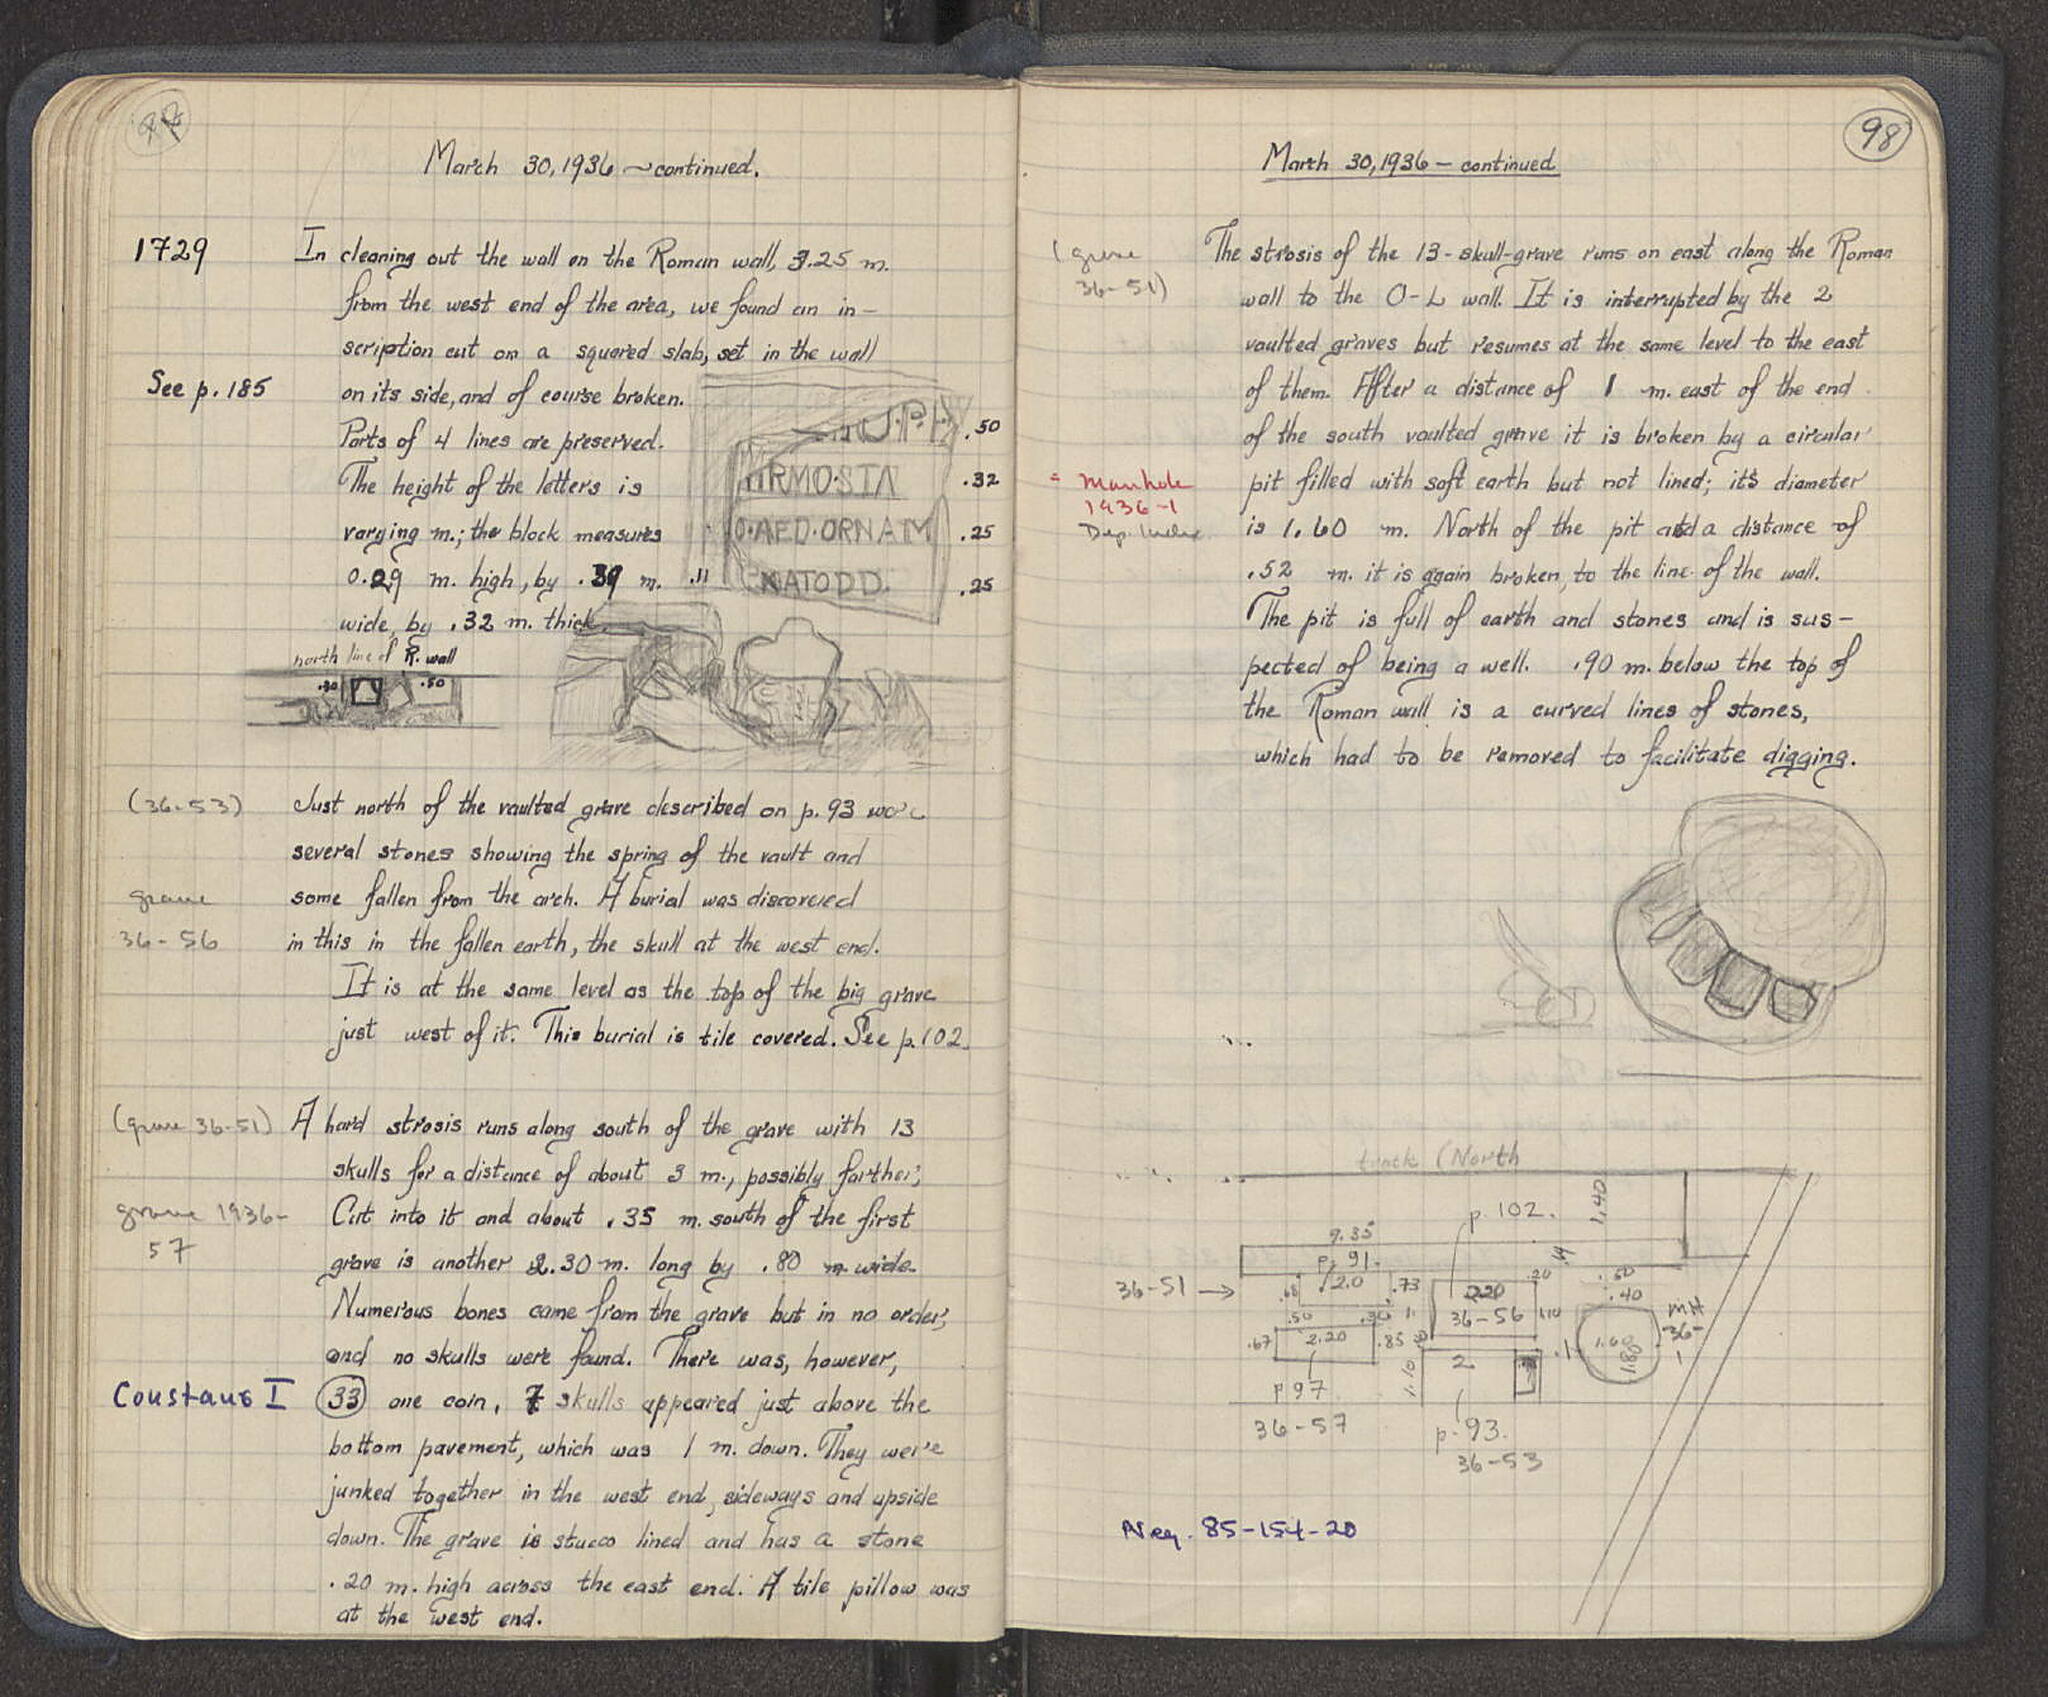 March 30, 1936 — continued.
1729
In cleaning out the wall on the Roman wall, 3.25 m.
from the west end of the area, we found an in-
scription cut on a squared slab, set in the wall
See p. 185
on its side, and of course broken.
Parts of 4 lines are preserved.
The height of the letters is
varying m.; the block measures
0.29 m. high, by .39 m.
wide, by .32 m. thick.
U.P.
.50
RMO·STA
.32
O·AED·ORNATM
.25
NATODD.
.11
.25
north line of R. wall
.30
.50
(36-53)
Just north of the vaulted grave described on p. 93 were
several stones showing the spring of the vault and
grave
36-56
some fallen from the arch. A burial was discovered
in this in the fallen earth, the skull at the west end.
It is at the same level as the top of the big grave
just west of it. This burial is tile covered. See p. 102.
(grave 36-51)
A hard strosis runs along south of the grave with 13
skulls for a distance of about 3 m., possibly farther;
grave 1936-
57
Cut into it and about .35 m. south of the first
grave is another 2.30 m. long by .80 m. wide.
Numerous bones came from the grave but in no order,
and no skulls were found. There was, however,
Constans I
33 one coin. 7 skulls appeared just above the
bottom pavement, which was 1 m. down. They were
junked together in the west end, sideways and upside
down. The grave is stucco lined and has a stone
.20 m. high across the east end. A tile pillow was
at the west end.
98
March 30, 1936 — continued
(grave
36-51)
The strosis of the 13-skull-grave runs on east along the Roman
wall to the O-L wall. It is interrupted by the 2
vaulted graves but resumes at the same level to the east
of them. After a distance of 1 m. east of the end
of the south vaulted grave it is broken by a circular
= Manhole
1936-1
Dep. Index
pit filled with soft earth but not lined; its diameter
is 1.60 m. North of the pit at a distance of
.52 m. it is again broken, to the line of the wall.
The pit is full of earth and stones and is sus-
pected of being a well. .90 m. below the top of
the Roman wall is a curved lines of stones,
which had to be removed to facilitate digging.
track (North
p. 102.
1.40
9.35
p. 91.
36-51 →
.68
2.0
.73
.20
.50
.40
.50
.30
11
220
36-56
1.10
MH
-36-
1
.67
2.20
.85
1.60
1.80
1.10
2
p 97
36-57
p. 93.
36-53
Neg. 85-154-20